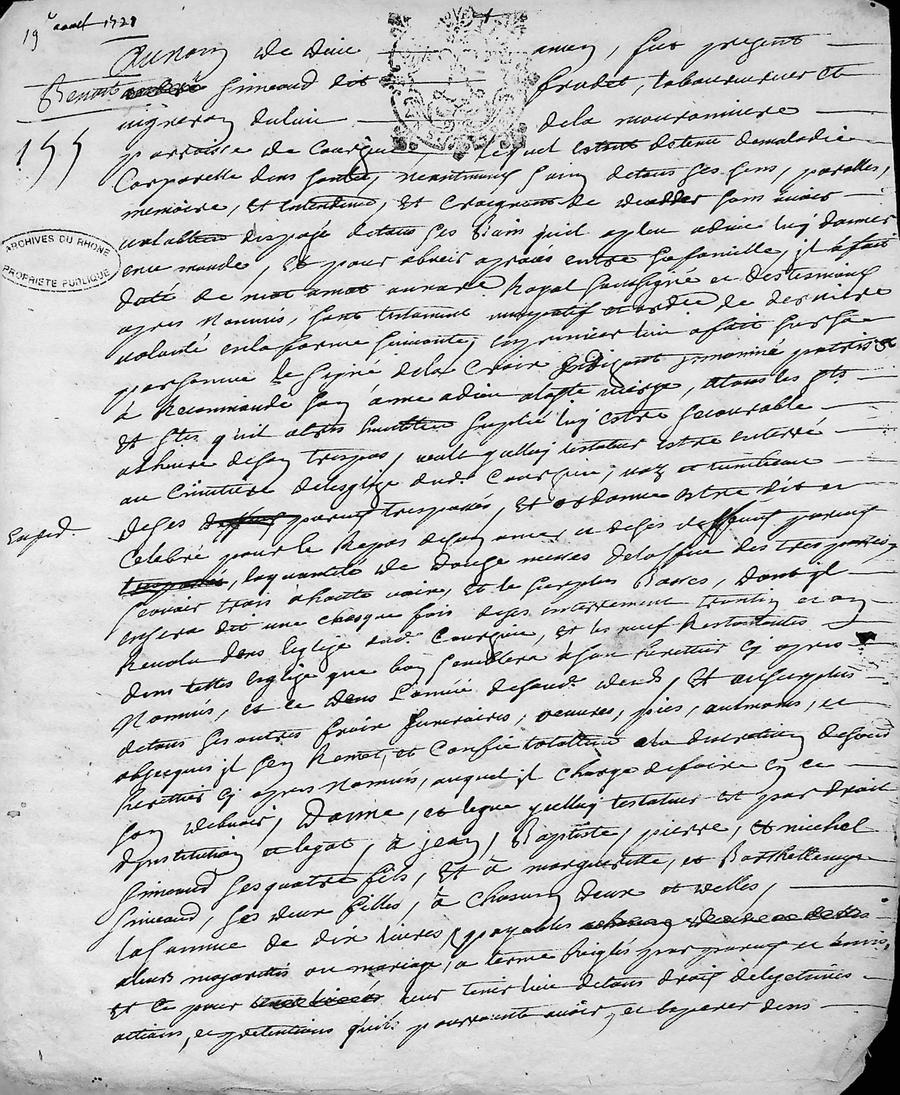 19e aoust 1721
Au nom de dieu amen, fut present
Benoit Simeaud dit frudet, laboureur et
vigneron du lieu de la mouronniere
155
parroisse de Courzieu lequel estant detenu de maladie
Corporelle dans son lit, neantmoins sain de tous ses sens, parolles,
memoire, et entendement, et Craignant de deceder sans avoir
vallablement dispozé de tous ses biens qu'il a pleu a dieu luy donner
ARCHIVES DU RHONE
PROPRIETE PUBLIQUE
en ce monde, et pour obvier a proces entre sa famille, il a fait
notaire Royal soussigné et des tesmoins
apres Nommés, son testament nuncupatif et ordre de derniere
volonté en la forme suivante, en premier lieu a fait sur sa
personne le signe de la Croix
a Recommandé son ame a dieu a la ste vierge, a tous les sts
et stes qu'il a tres humblement suplié luy estre secourable
a l'heure de son trespas, veult yceluy testateur estre enterré
au Cimitiere de l'esglize dud Courzieu, vaz et tumbeau
de ses parents trespassés, et ordonne estre dit et
Celebré pour le Repos de son ame et de ses deffunts parents
la quantité de douze messes de l'office des trespassés,
sçavoir trois a haute voix, et le surplus Basses, dont il
en sera dit une chasque fois de ses enterrement
Revolu dans l'eglize dud Courzieu, et les neuf Restantes
dans telles esglize que bon semblera a son heretier cy apres
Nommés, et ce dans l'année de son deces, et au surplus
de tous ses autres frais funeraires, oeuvres, pies, aulmones, et
obseques il s'en Remet, et Confie totallement a la discretion de son
heretier cy apres Nommés, auquel il charge de faire en ce
son debvoir, Donne, et legue yceluy testateur et par droit
d'institution et legat, a jean, Baptiste, pierre, et michel
Simeaud ses quatre fils, et à marguerite, et Barthellemye
Simeaud, ses deux filles, à Chascun d'eux et d'elles,
la somme de dix livres, payables
a leurs majorités ou mariage,
et Ce pour leur tenir lieu de tous droits de legitimes
actions, et pretentions qu'ils pourroient avoir, et esperer dans